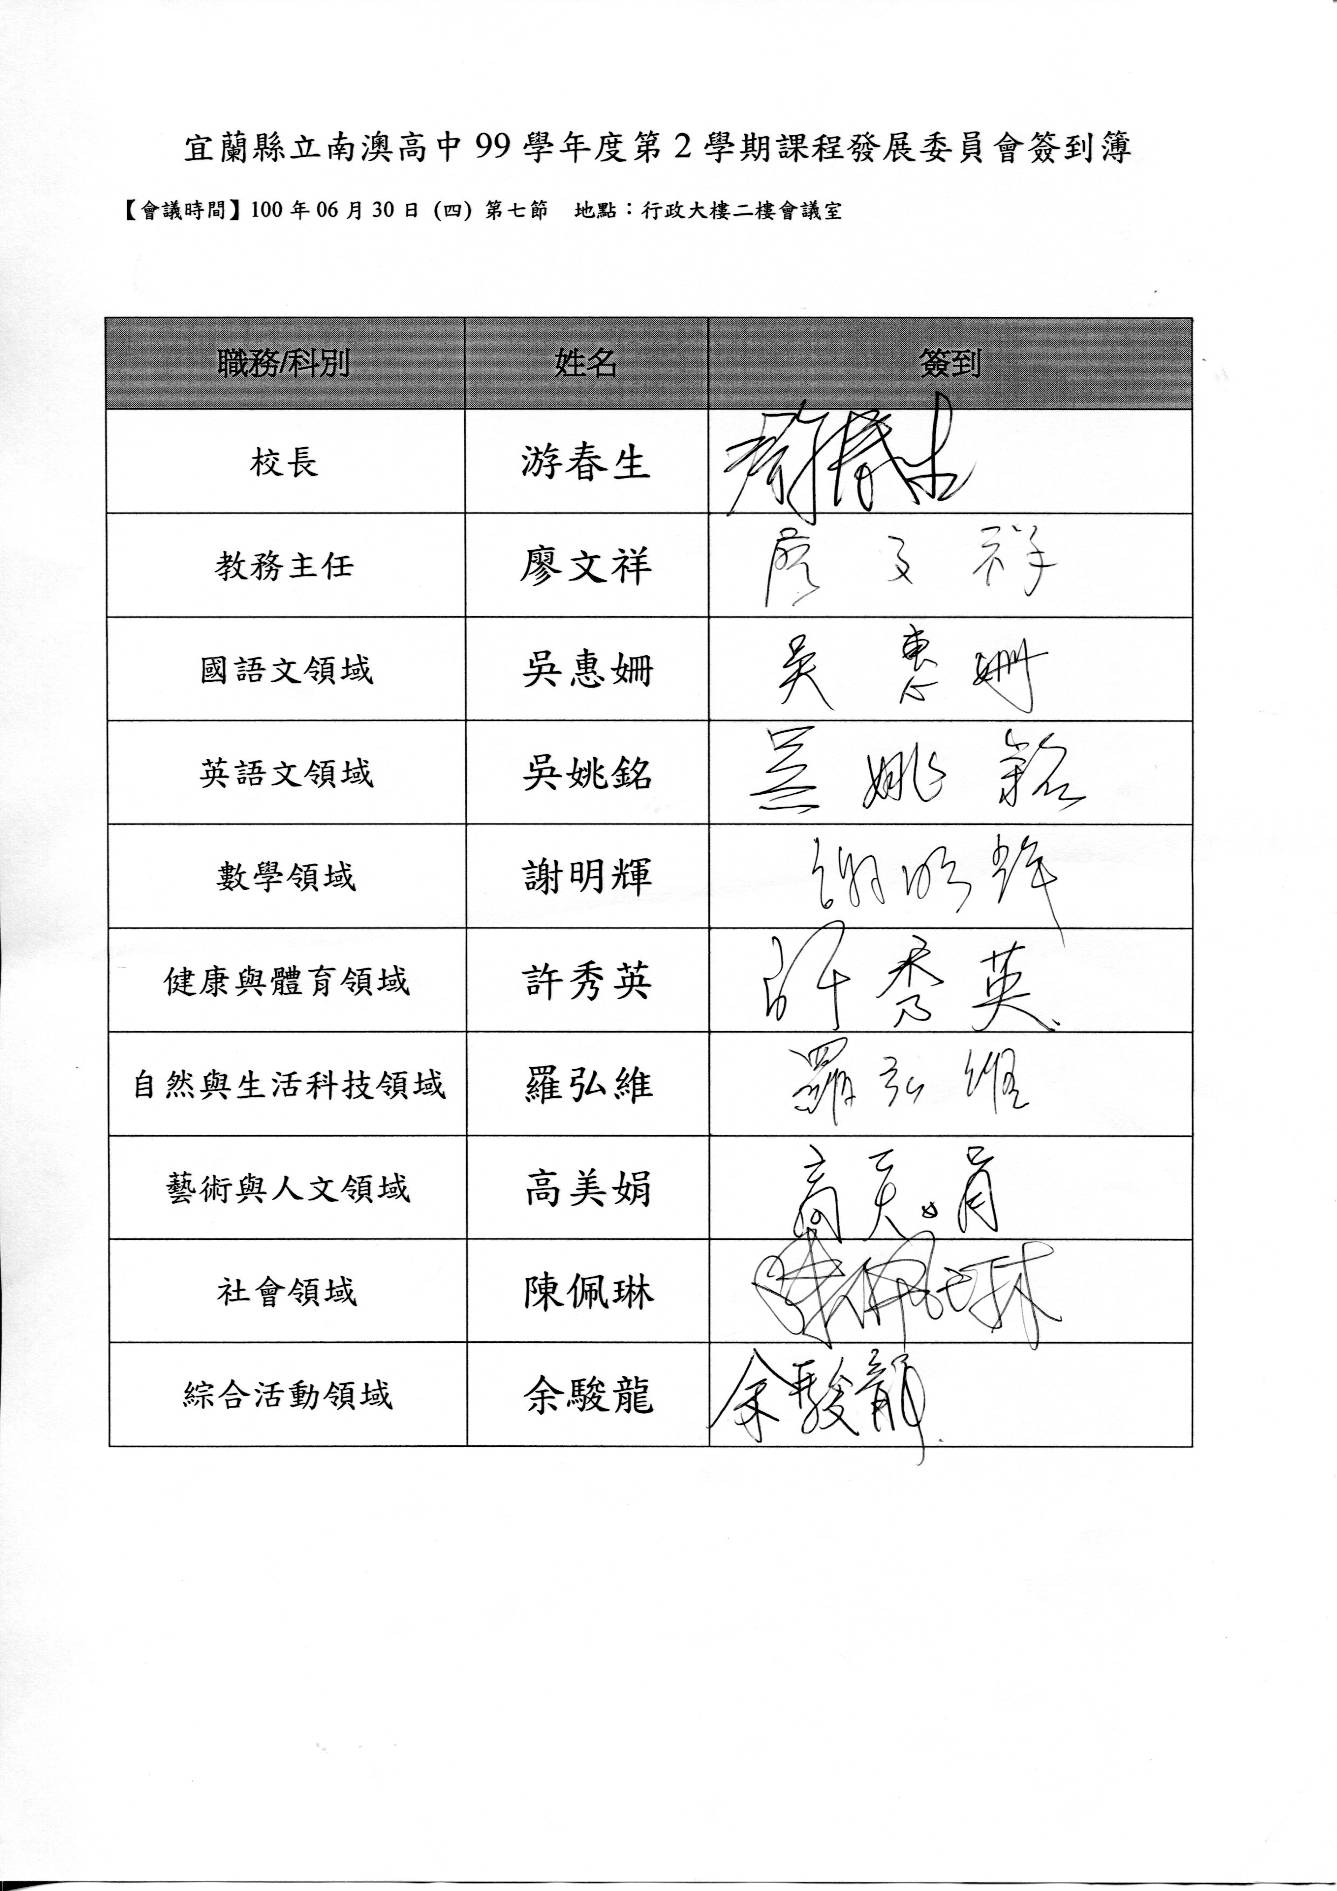 宜蘭縣立南澳高中 99 學年度第 2 學期課程發展委員會簽到簿
【會議時間】100 年 06 月 30 日 (四) 第七節 地點：行政大樓二樓會議室
職務/科別 姓名 簽到
校長 游春生 游春生
教務主任 廖文祥 廖文祥
國語文領域 吳惠姍 吳惠姍
英語文領域 吳姚銘 吳姚銘
數學領域 謝明輝 謝明輝
健康與體育領域 許秀英 許秀英
自然與生活科技領域 羅弘維 羅弘維
藝術與人文領域 高美娟 高美娟
社會領域 陳佩琳 陳佩琳
綜合活動領域 余駿龍 余駿龍